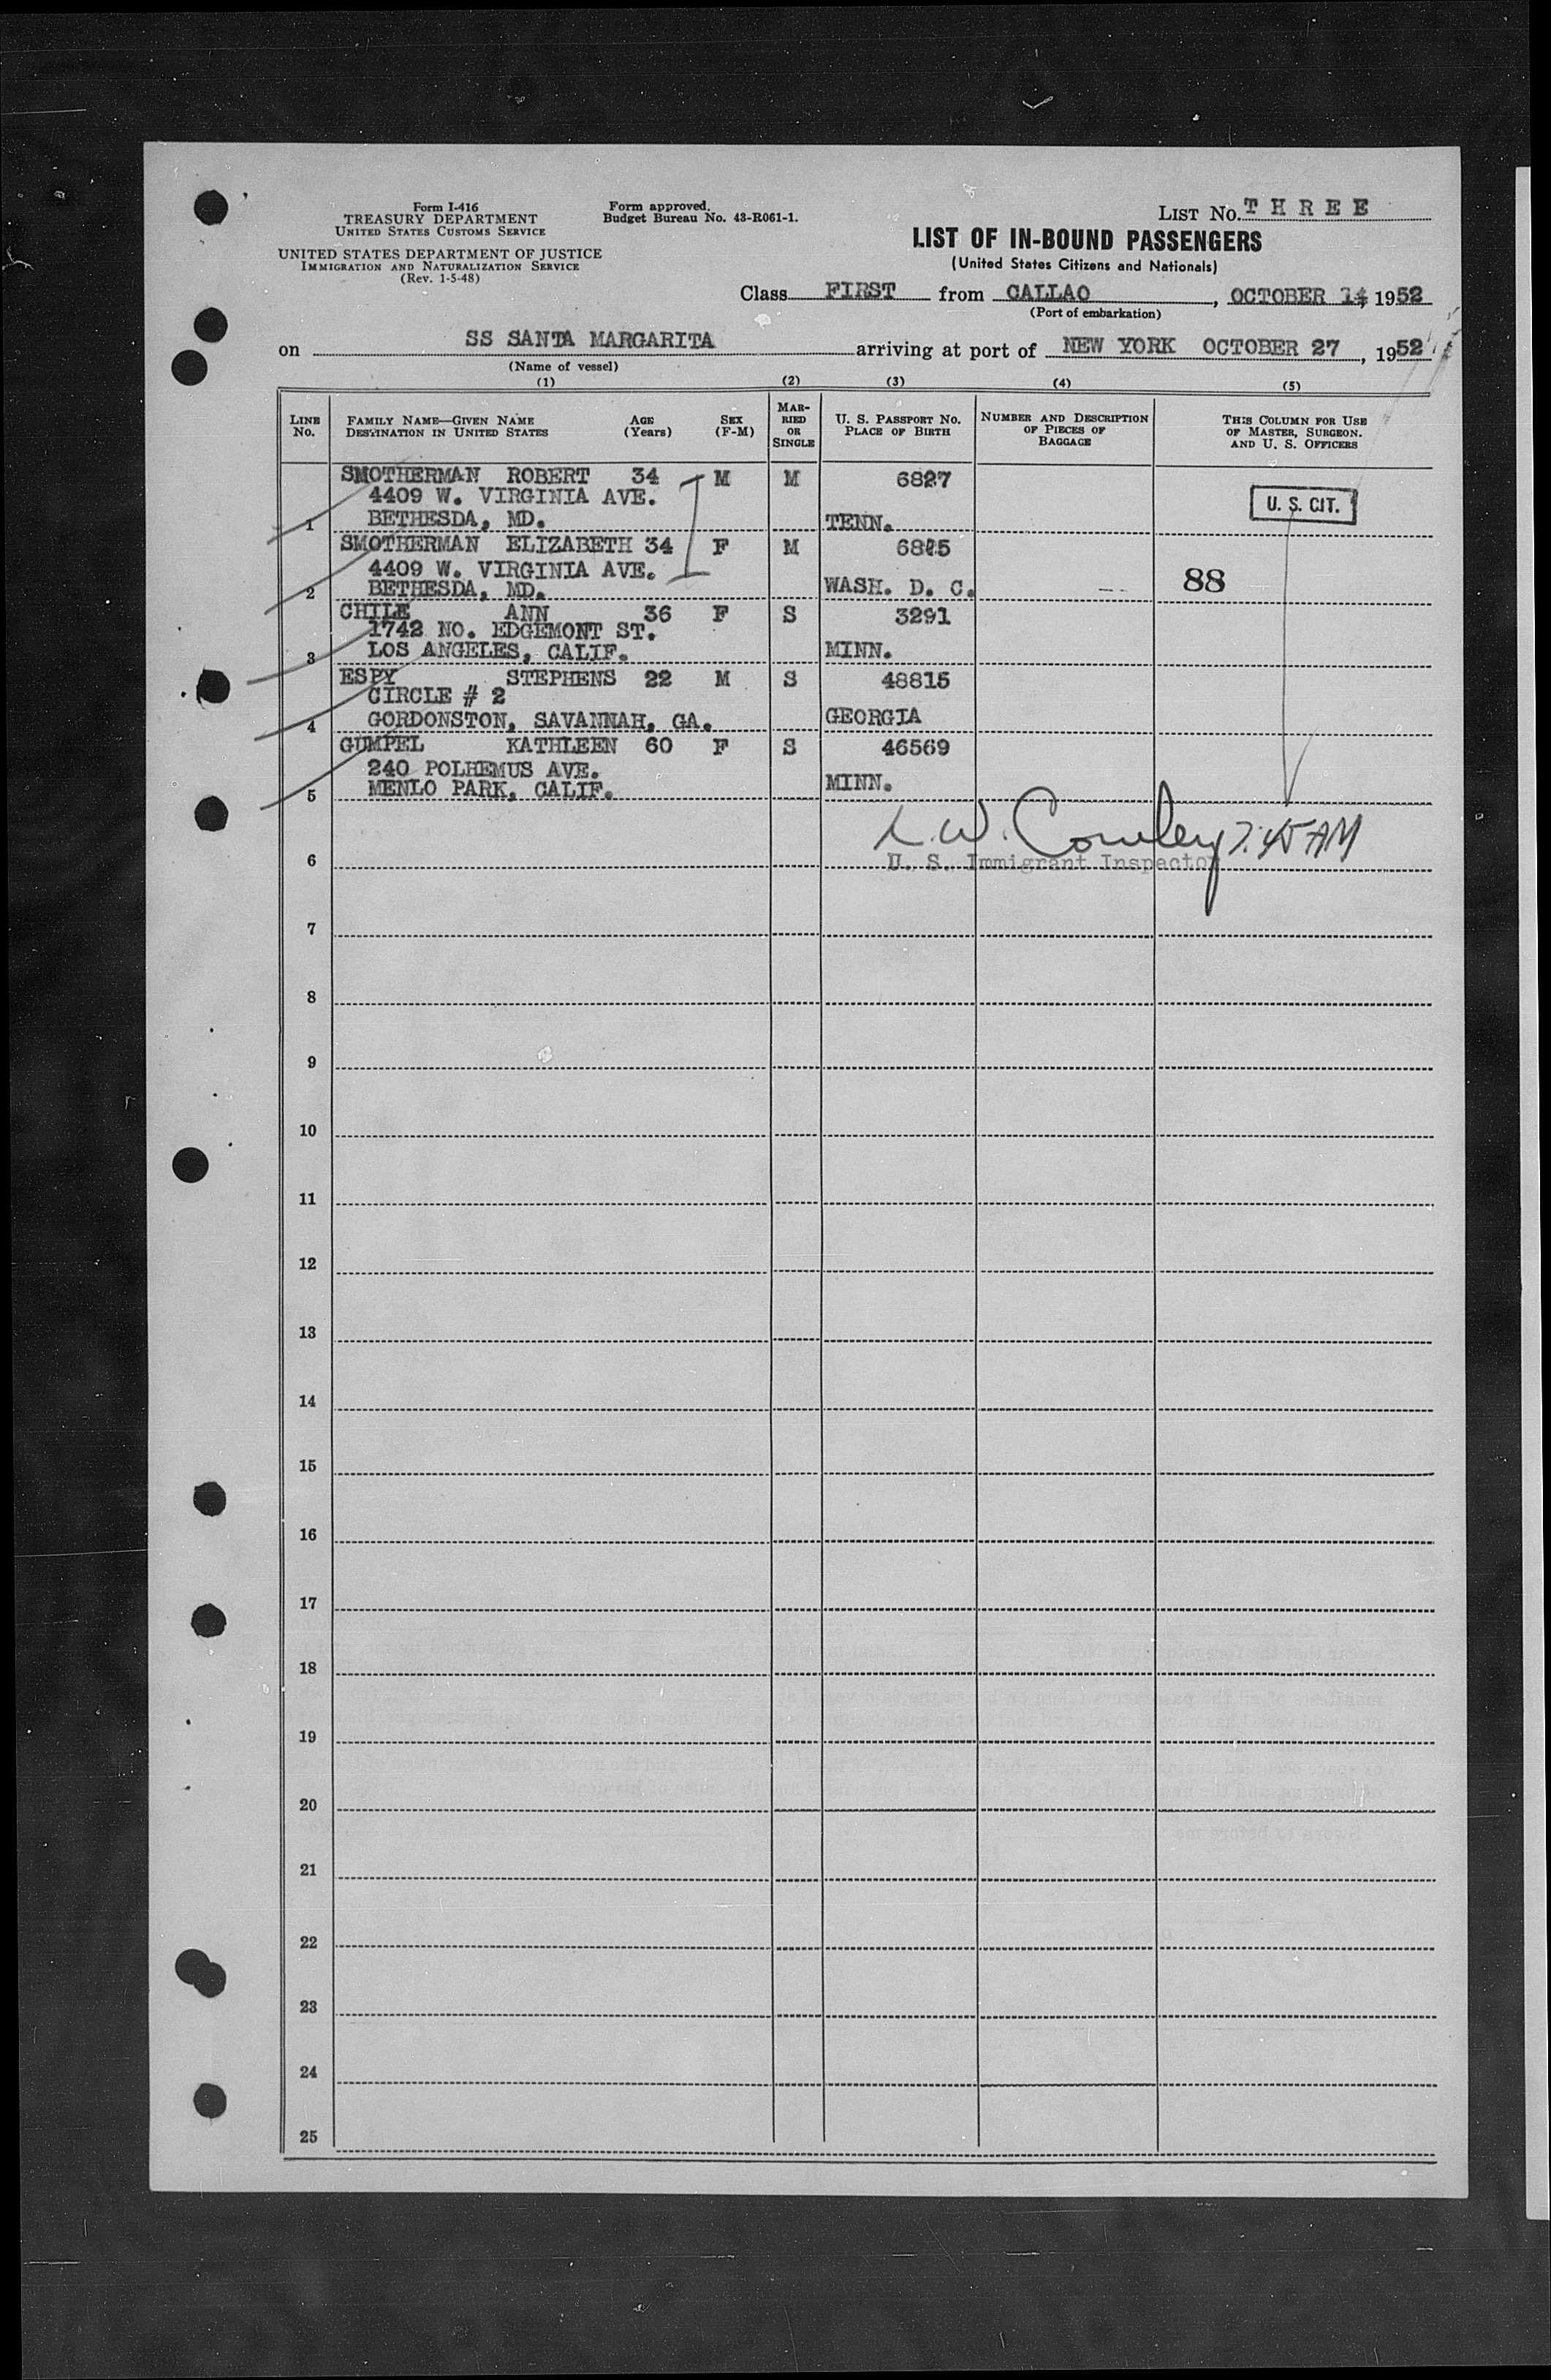 Form I-416
TREASURY DEPARTMENT
UNITED STATES CUSTOMS SERVICE
UNITED STATES DEPARTMENT OF JUSTICE
IMMIGRATION AND NATURALIZATION SERVICE
(Rev. 1-5-48)
Form approved.
Budget Bureau No. 43-R061-1.
LIST NO. THREE
LIST OF IN-BOUND PASSENGERS
(United States Citizens and Nationals)
Class FIRST from CALLAO, OCTOBER 14, 1952
(Port of embarkation)
on SS SANTA MARGARITA arriving at port of NEW YORK OCTOBER 27, 1952
(Name of vessel)
(1) (2) (3) (4) (5)
LINE No.
FAMILY NAME—GIVEN NAME AGE SEX
DESTINATION IN UNITED STATES (Years) (F-M)
MARRIED OR SINGLE
U. S. PASSPORT NO.
PLACE OF BIRTH
NUMBER AND DESCRIPTION OF PIECES OF BAGGAGE
THIS COLUMN FOR USE OF MASTER, SURGEON. AND U. S. OFFICERS
SMOTHERMAN ROBERT 34 M M 6827
4409 W. VIRGINIA AVE.
U. S. CIT.
1 BETHESDA, MD. TENN.
SMOTHERMAN ELIZABETH 34 F M
4409 W. VIRGINIA AVE.
88
2 BETHESDA, MD. WASH. D. C.
CHILE ANN 36 F S 3291
1742 NO. EDGEMONT ST.
3 LOS ANGELES, CALIF. MINN.
ESPY STEPHENS 22 M S 48815
CIRCLE # 2
4 GORDONSTON, SAVANNAH, GA. GEORGIA
GUMPEL KATHLEEN 60 F S 46569
240 POLHEMUS AVE.
5 MENLO PARK, CALIF. MINN.
7:45 AM
6 U. S. Immigrant Inspector
7
8
9
10
11
12
13
14
15
16
17
18
19
20
21
22
23
24
25